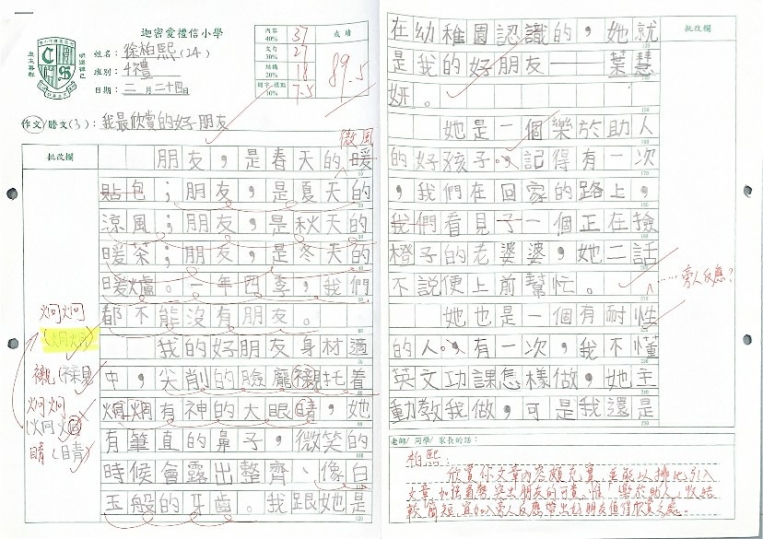 迦密愛禮信小學
姓名：徐柏熙(24)
班別：4禮
日期：二月二十四日
內容 40% 37
文句 30% 27
結構 20% 18
錯字、標點 10% 7.5
成績
89.5
作文/謄文(3)：我最欣賞的好朋友
批改欄
微風
朋友，是春天的暖
貼包；朋友，是夏天的
涼風；朋友，是秋天的
暖茶；朋友，是冬天的
暖爐。一年四季，我們
都不能沒有朋友。
我的好朋友身材適
中，尖削的臉龐襯托着
炯炯有神的大眼睛，她
有筆直的鼻子，微笑的
時候會露出整齊、像白
玉般的牙齒。我跟她是
炯炯
(炯炯)
襯
炯炯
睛
在幼稚園認識的，她就
是我的好朋友——葉慧
妍。
她是一個樂於助人
的好孩子。記得有一次
，我們在回家的路上，
我們看見了一個正在撿
橙子的老婆婆，她二話
不說便上前幫忙。
…旁人反應？
她也是一個有耐性
的人。有一次，我不懂
英文功課怎樣做，她主
動教我做，可是我還是
批改欄
老師/同學/家長的話：
柏熙：
欣賞你文章內容頗充實，並能以排比引入
文章